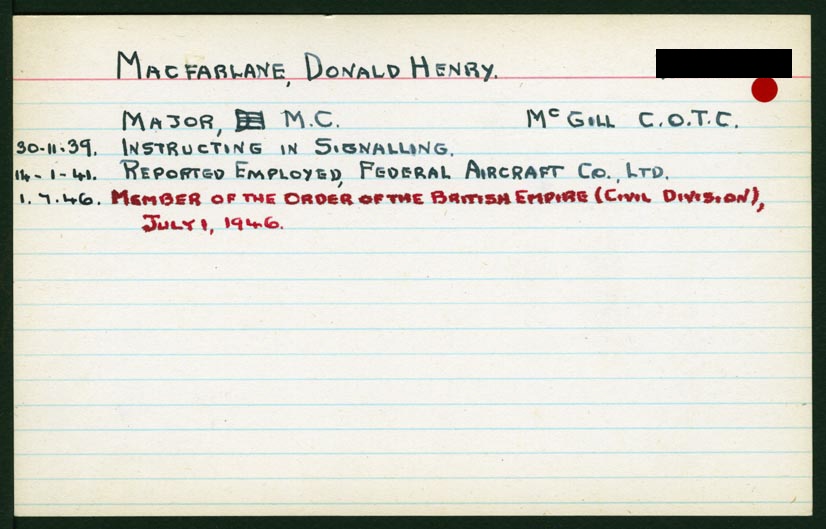 MACFARLANE, DONALD HENRY.
MAJOR, M.C. McGILL C.O.T.C.
30-11-39. INSTRUCTING IN SIGNALLING.
14-1-41. REPORTED EMPLOYED, FEDERAL AIRCRAFT CO., LTD.
1.7.46. MEMBER OF THE ORDER OF THE BRITISH EMPIRE (CIVIL DIVISION),
JULY 1, 1946.